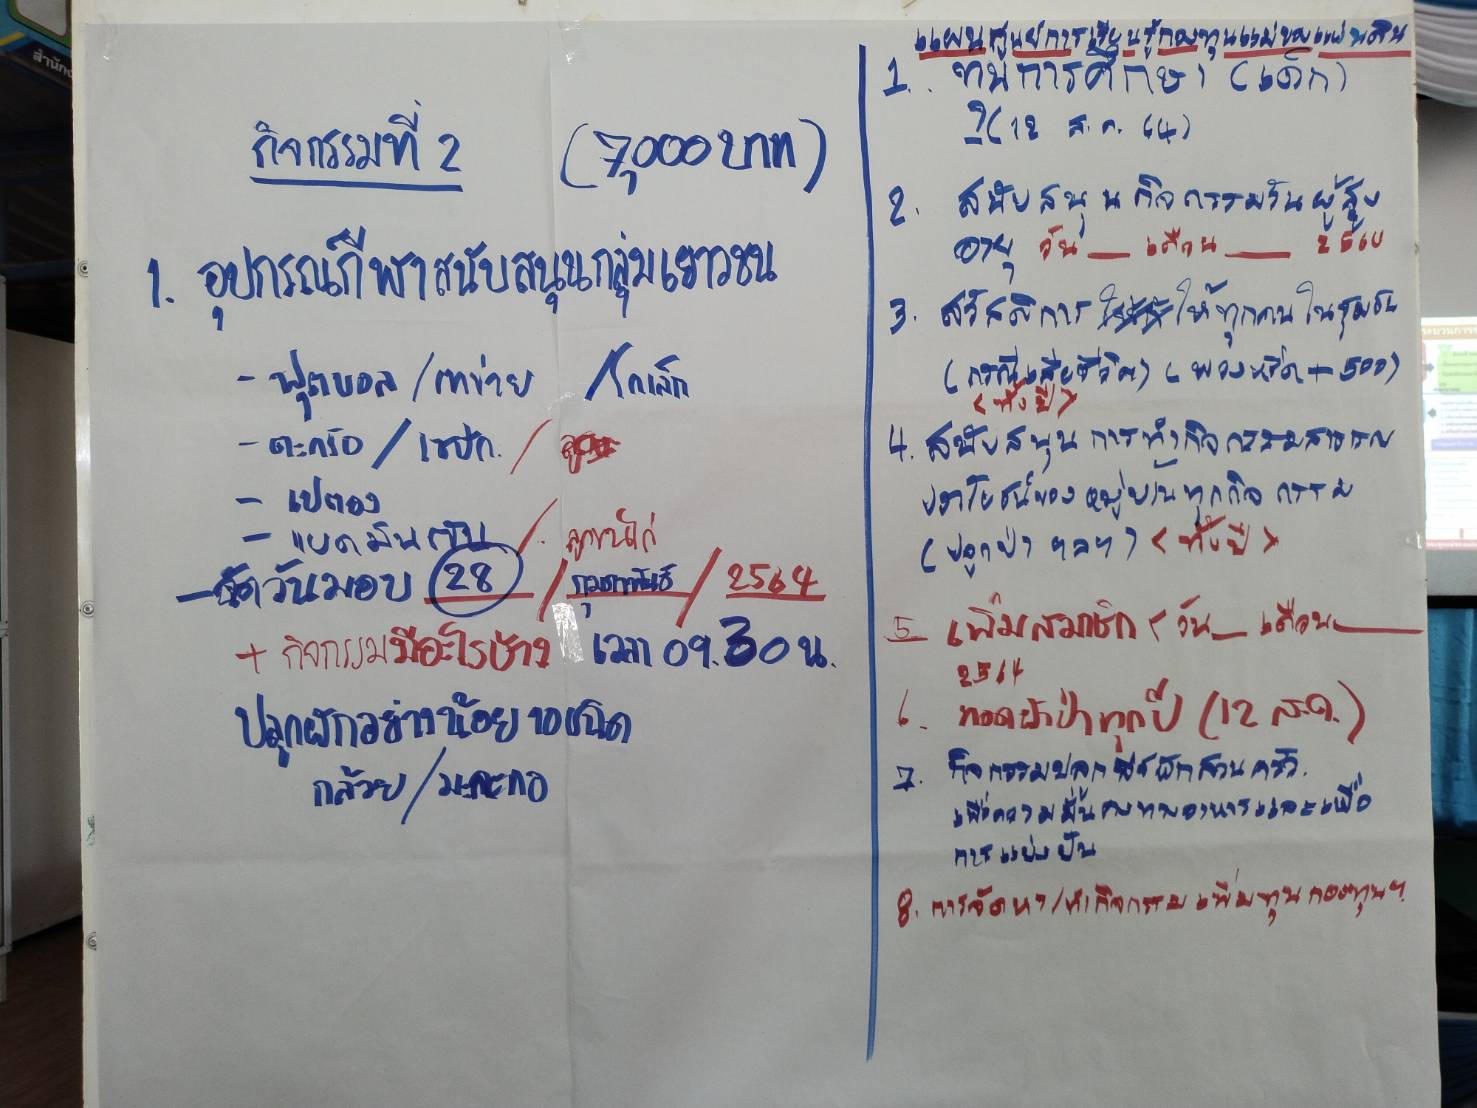 กิจกรรมที่ 2 (7,000 บาท)
1. อุปกรณ์กีฬาสนับสนุนกลุ่มเยาวชน
- ฟุตบอล / ตาข่าย / โกเล็ก
- ตะกร้อ / เซปัก. /
- เปตอง
- แบดมินตัน / ลูกขนไก่
- จัดวันมอบ 28 / กุมภาพันธ์ / 2564
+ กิจกรรมมีอะไรบ้าง เวลา 09.30 น.
ปลูกผักอย่างน้อย 10 ชนิด
กล้วย / มะละกอ
แผนศูนย์การเรียนรู้กองทุนแม่ของแผ่นดิน
1. ทุนการศึกษา (เด็ก)
? (12 ส.ค. 64)
2. สนับสนุนกิจกรรมวันผู้สูง
อายุ วัน __ เดือน ___ 2564
3. สวัสดิการ ให้ทุกคนในชุมชน
(กรณีเสียชีวิต) (พวงหรีด + 500)
<ทั้งปี>
4. สนับสนุนการทำกิจกรรมสาธารณ
ประโยชน์ของหมู่บ้านทุกกิจกรรม
(ปลูกป่า ฯลฯ) <ทั้งปี>
5 เพิ่มสมาชิก < วัน __ เดือน ____
2564
6. ทอดผ้าป่าทุกปี (12 ส.ค.)
7. กิจกรรมปลูกพืชผักสวนครัว.
เพื่อความมั่นคงทางอาหารและเพื่อ
การแบ่งปัน
8. การจัดหา/ทำกิจกรรมเพิ่มทุนกองทุนฯ
สำนัก